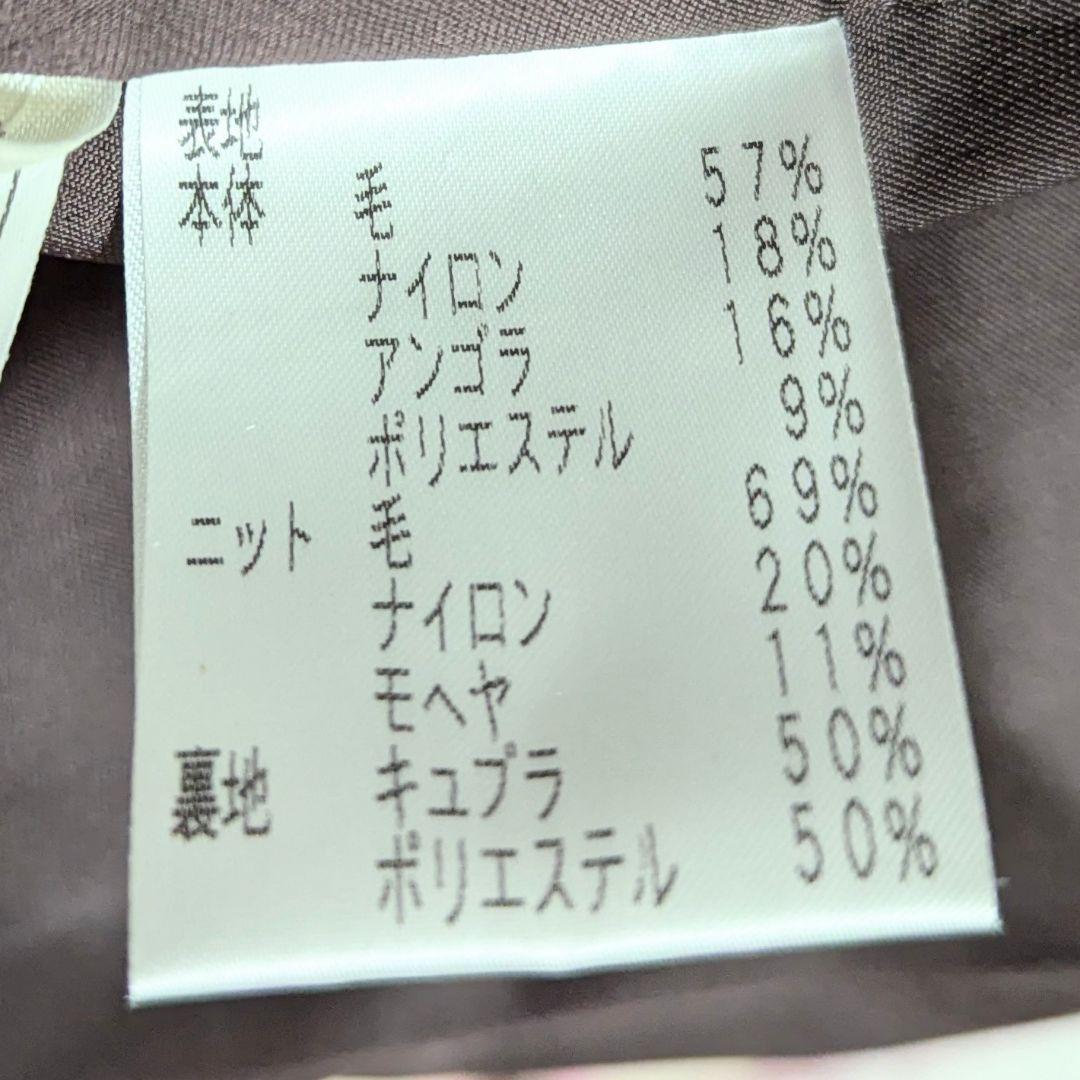 表地
本体 毛 57%
ナイロン 18%
アンゴラ 16%
ポリエステル 9%
ニット 毛 69%
ナイロン 20%
モヘヤ 11%
裏地 キュプラ 50%
ポリエステル 50%